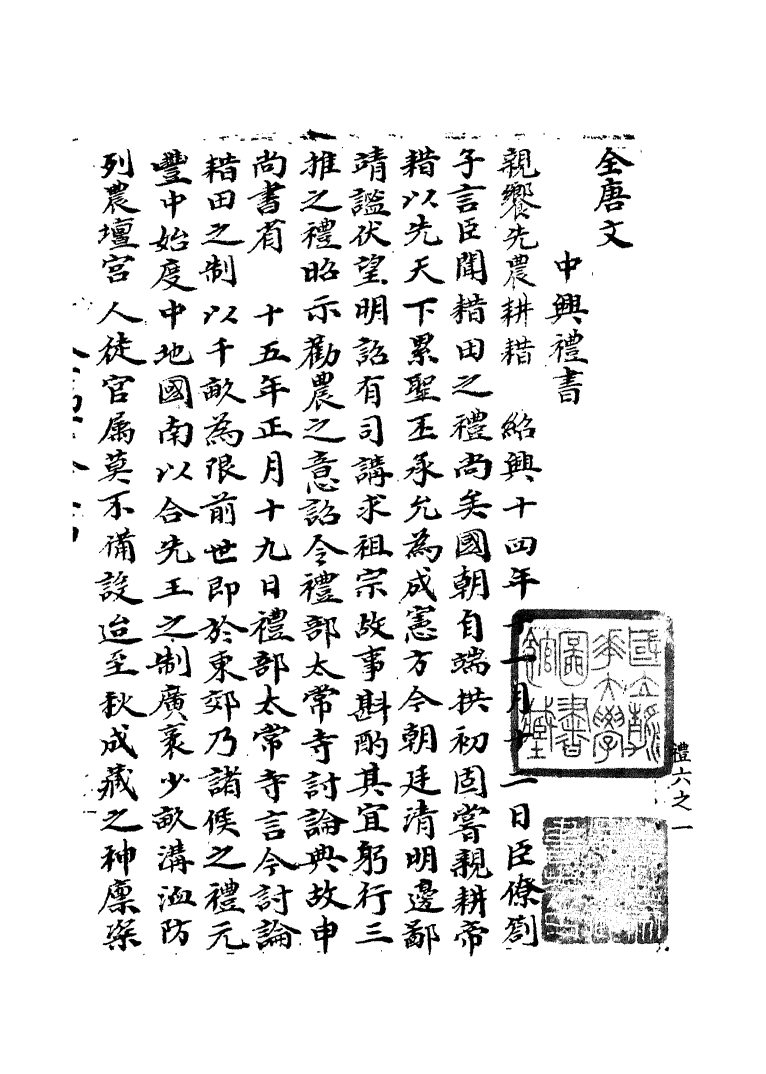 全唐文
中興禮書
親饗先農耕耤　紹興十四年十一月十二日臣僚劄
子言臣聞耤田之禮尚矣國朝自端拱初固嘗親耕帝
耤以先天下累聖丕承允為成憲方今朝廷清明邊鄙
靖謐伏望明詔有司講求祖宗故事斟酌其宜躬行三
推之禮昭示勸農之意詔令禮部太常寺討論典故申
尚書省　十五年正月十九日禮部太常寺言今討論
耤田之制以千畝為限前世即於東郊乃諸侯之禮元
豐中始度中地國南以合先王之制廣袤少畝溝洫防
列農壇宮人徒官屬莫不備設迨至秋成藏之神廩粢
禮六之一
國立清華大學圖書館藏